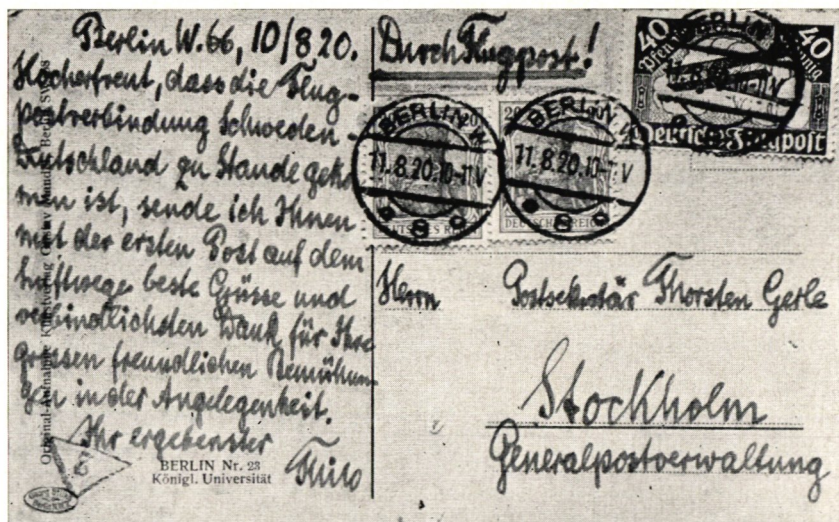 Berlin W. 66, 10/8 20.
Hocherfreut, dass die Flug-
postverbindung Schweden-
Deutschland zu Stande gekom-
men ist, sende ich Ihnen
mit der ersten Post auf dem
Luftwege beste Grüsse und
verbindlichsten Dank für Ihre
grossen freundlichen Bemühun-
gen in der Angelegenheit.
Ihr ergebenster
Thilo
BERLIN Nr. 23
Königl. Universität
Original-Aufnahme Kunstverlag Gustav
Durch Flugpost!
40 40
Deutsche Flugpost
BERLIN W
11.8.20.10-11V
8
DEUTSCHES REICH
20
BERLIN W
11.8.20.10-11V
8
DEUTSCHES REICH
BERLIN
Herrn Postsekretär Thorsten Gerle
Stockholm
Generalpostverwaltung